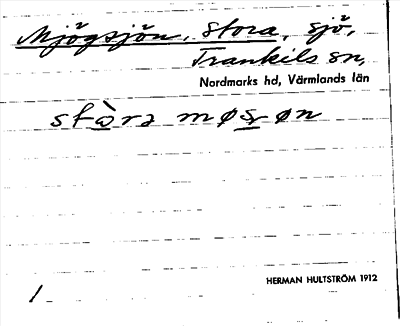 Mjögsjön, Stora, sjö,
Trankils sn,
Nordmarks hd, Värmlands län
stòra møsøn
HERMAN HULTSTRÖM 1912
1